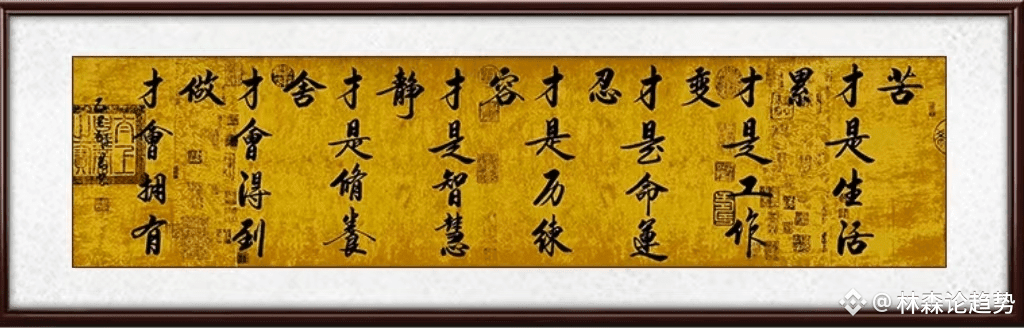 苦
才是生活
累
才是工作
变
才是命運
忍
才是历练
容
才是智慧
静
才是脩養
舍
才會得到
做
才會拥有
@林森论趋势